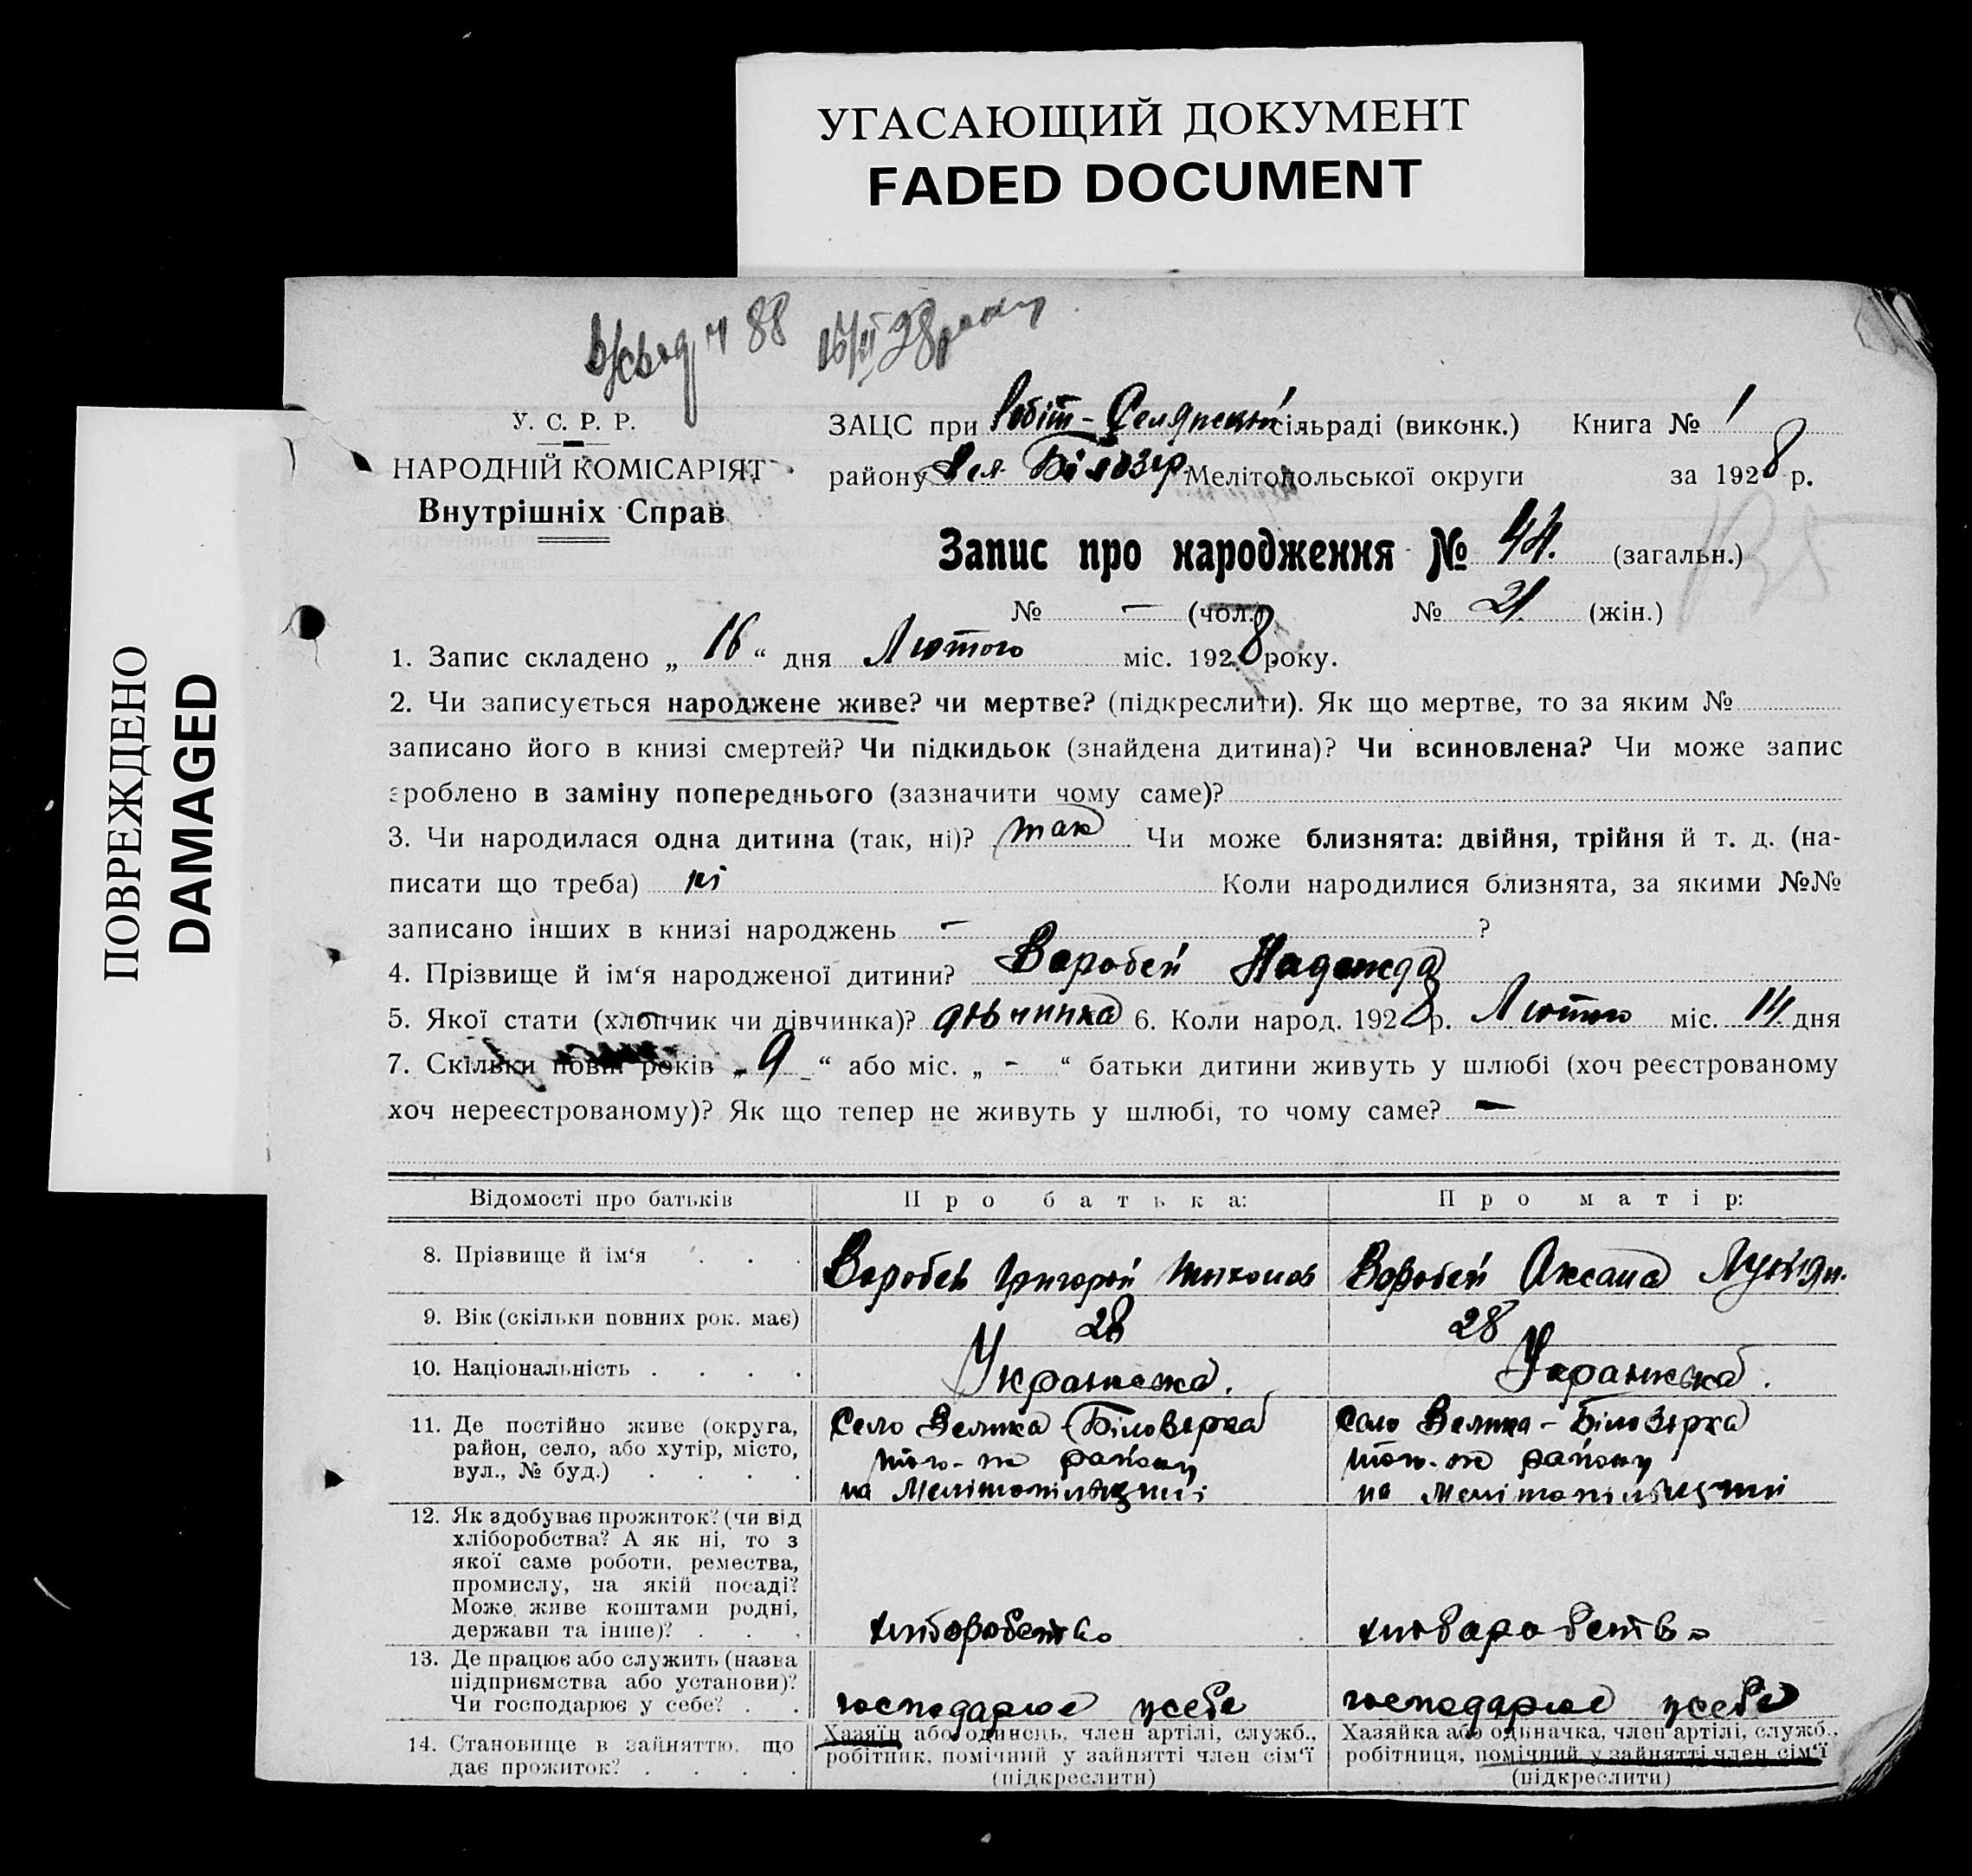 УГАСАЮЩИЙ ДОКУМЕНТ
FADED DOCUMENT
ПОВРЕЖДЕНО
DAMAGED
88 28 року
У. С. Р. Р.
НАРОДНІЙ КОМІСАРІЯТ
Внутрішніх Справ
ЗАЦС при Робіт-Селянській сільраді (виконк.) Книга № 1
району Вел. Білозер Мелітопольської округи за 1928 р.
Запис про народження № 44. (загальн.)
№ — (чол.) № 21 (жін.)
1. Запис складено „ 16 “ дня Лютого міс. 1928 року.
2. Чи записується народжене живе? чи мертве? (підкреслити). Як що мертве, то за яким №
записано його в книзі смертей? Чи підкидьок (знайдена дитина)? Чи всиновлена? Чи може запис
зроблено в заміну попереднього (зазначити чому саме)?
3. Чи народилася одна дитина (так, ні)? так Чи може близнята: двійня, трійня й т. д. (на-
писати що треба) ні Коли народилися близнята, за якими №№
записано інших в книзі народжень — ?
4. Прізвище й ім‘я народженої дитини? Воробей Надежда
5. Якої стати (хлопчик чи дівчинка)? дівчинка 6. Коли народ. 1928 р. Лютого міс. 14 дня
7. Скільки повн. років „ 9 “ або міс. „ - “ батьки дитини живуть у шлюбі (хоч реєстрованому
хоч нереєстрованому)? Як що тепер не живуть у шлюбі, то чому саме? —
Відомості про батьків
Про батька:
Про матір:
8. Прізвище й ім‘я . . .
Воробей Григорій Тихонов
Воробей Оксана
9. Вік (скільки повних рок. має)
28
28
10. Національність . . . .
Українська.
Українська.
11. Де постійно живе (округа,
район, село, або хутір, місто,
вул., № буд.) . . . .
Село Велика Білозерка
того-же району
на Мелітопільщині
Село Велика-Білозерка
того-же району
на Мелітопільщині
12. Як здобуває прожиток? (чи від
хліборобства? А як ні, то з
якої саме роботи, ремества,
промислу, на якій посаді?
Може живе коштами родні,
держави та інше)? . . .
хліборобство
хліборобство
13. Де працює або служить (назва
підприємства або установи)?
Чи господарює у себе? . .
господарює усебе
господарює усебе
14. Становище в зайняттю, що
дає прожиток? . . . .
Хазяїн або одинець, член артілі, служб.,
робітник, помічний у зайнятті член сім‘ї
(підкреслити)
Хазяйка або одиначка, член артілі, служб.,
робітниця, помічний у зайнятті член сім‘ї
(підкреслити)